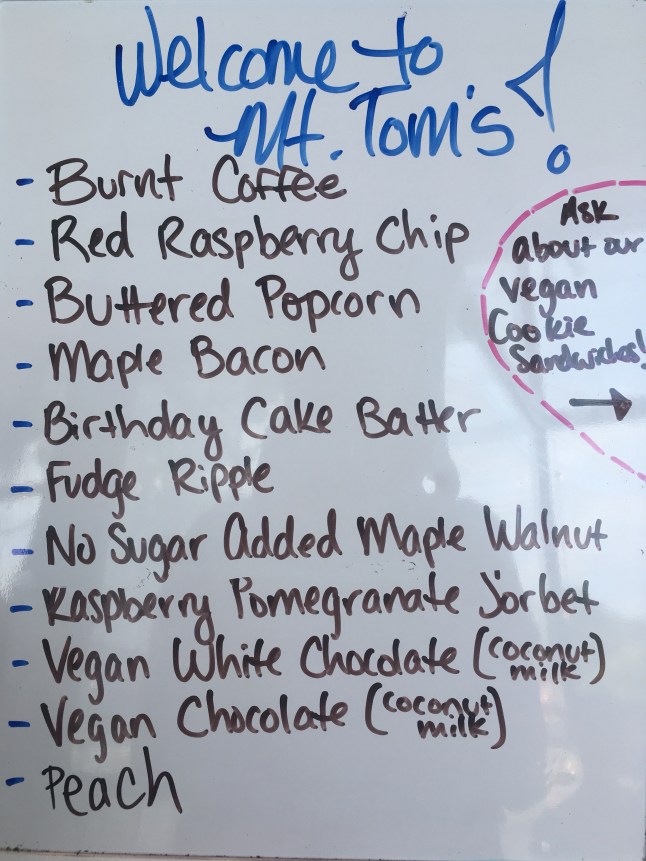 Welcome to
Mt. Tom's!
- Burnt Coffee
- Red Raspberry Chip
- Buttered Popcorn
- Maple Bacon
- Birthday Cake Batter
- Fudge Ripple
- No Sugar Added Maple Walnut
- Raspberry Pomegranate Sorbet
- Vegan White Chocolate (coconut milk)
- Vegan Chocolate (coconut milk)
- Peach
Ask
about our
vegan
Cookie
Sandwiches!
→